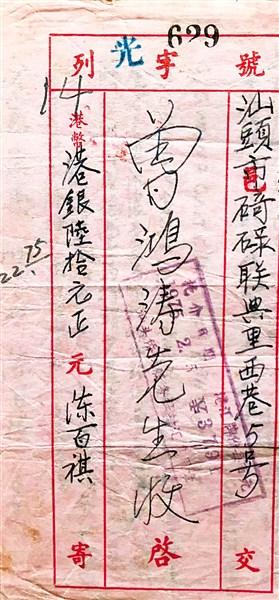 629
光
號字列
汕頭市
邑
礐碌联興里西巷5号
交
曾鴻濤先生收
啓
14
港幣
港銀陸拾元正
元
陈百祺
寄
22.75